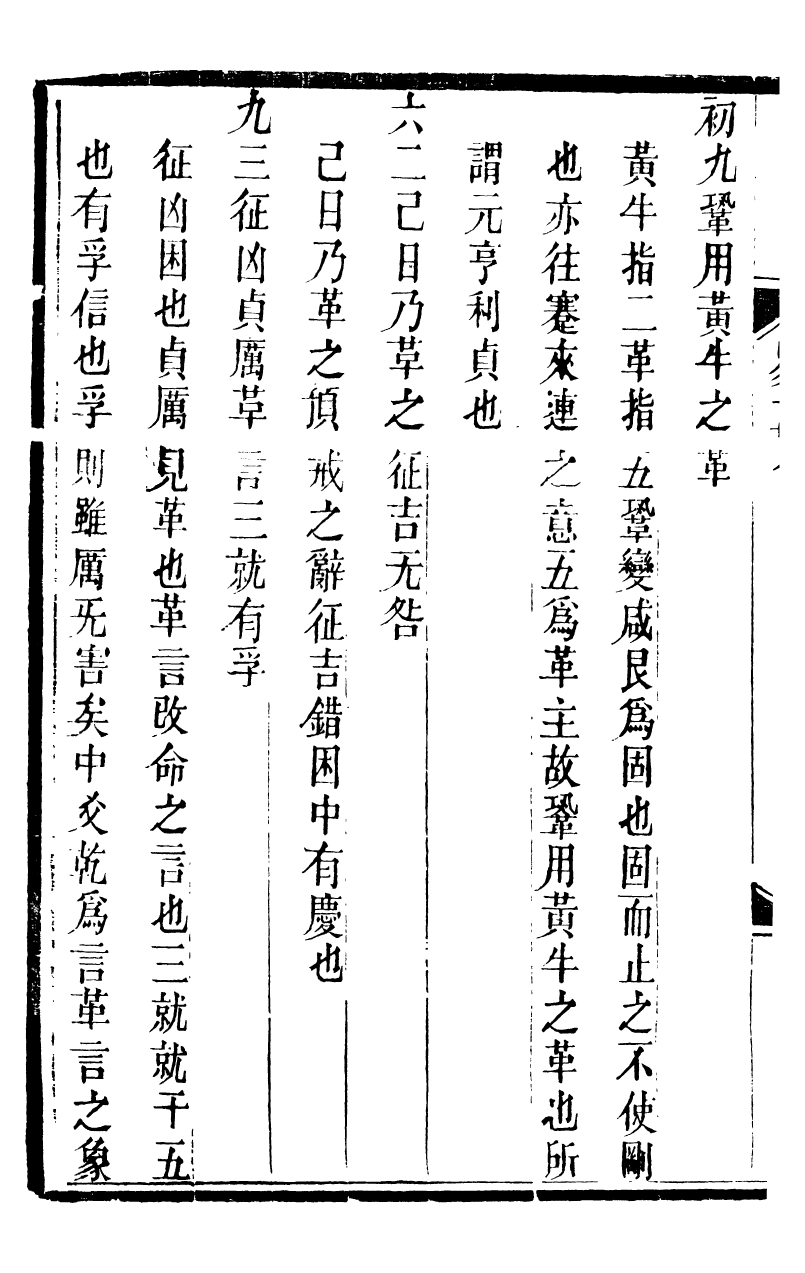 初九鞏用黃牛之革
黃牛指二革指五鞏變咸艮爲固也固而止之不使剛
也亦往蹇來連之意五爲革主故鞏用黃牛之革也所
謂元亨利貞也
六二己日乃革之征吉无咎
己日乃革之頂戒之辭征吉錯困中有慶也
九三征凶貞厲革言三就有孚
征凶困也貞厲見革也革言改命之言也三就就于五
也有孚信也孚則雖厲旡害矣中爻乾爲言革言之象